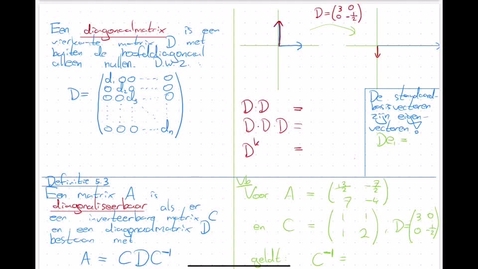 Een diagonaalmatrix is een
vierkante matrix D met
buiten de hoofddiagonaal
alleen nullen. D.w.z.
D = (d₁ 0 0 ... 0
0 d₂ 0 ... 0
0 0 d₃ ... 0
0 0 ... ... dₙ)
D = (3 0
0 -½)
D·D =
D·D·D =
Dᵏ =
De standaard-
basisvectoren
zijn eigen-
vectoren!
Deᵢ =
Definitie 5.3
Een matrix A is
diagonaliseerbaar als er
een inverteerbare matrix C
en een diagonaalmatrix D
bestaan met
A = CDC⁻¹
Vb
Voor A =
7 -4
en C = (1 1
1 2), D = (3 0
0 -½)
geldt C⁻¹ =